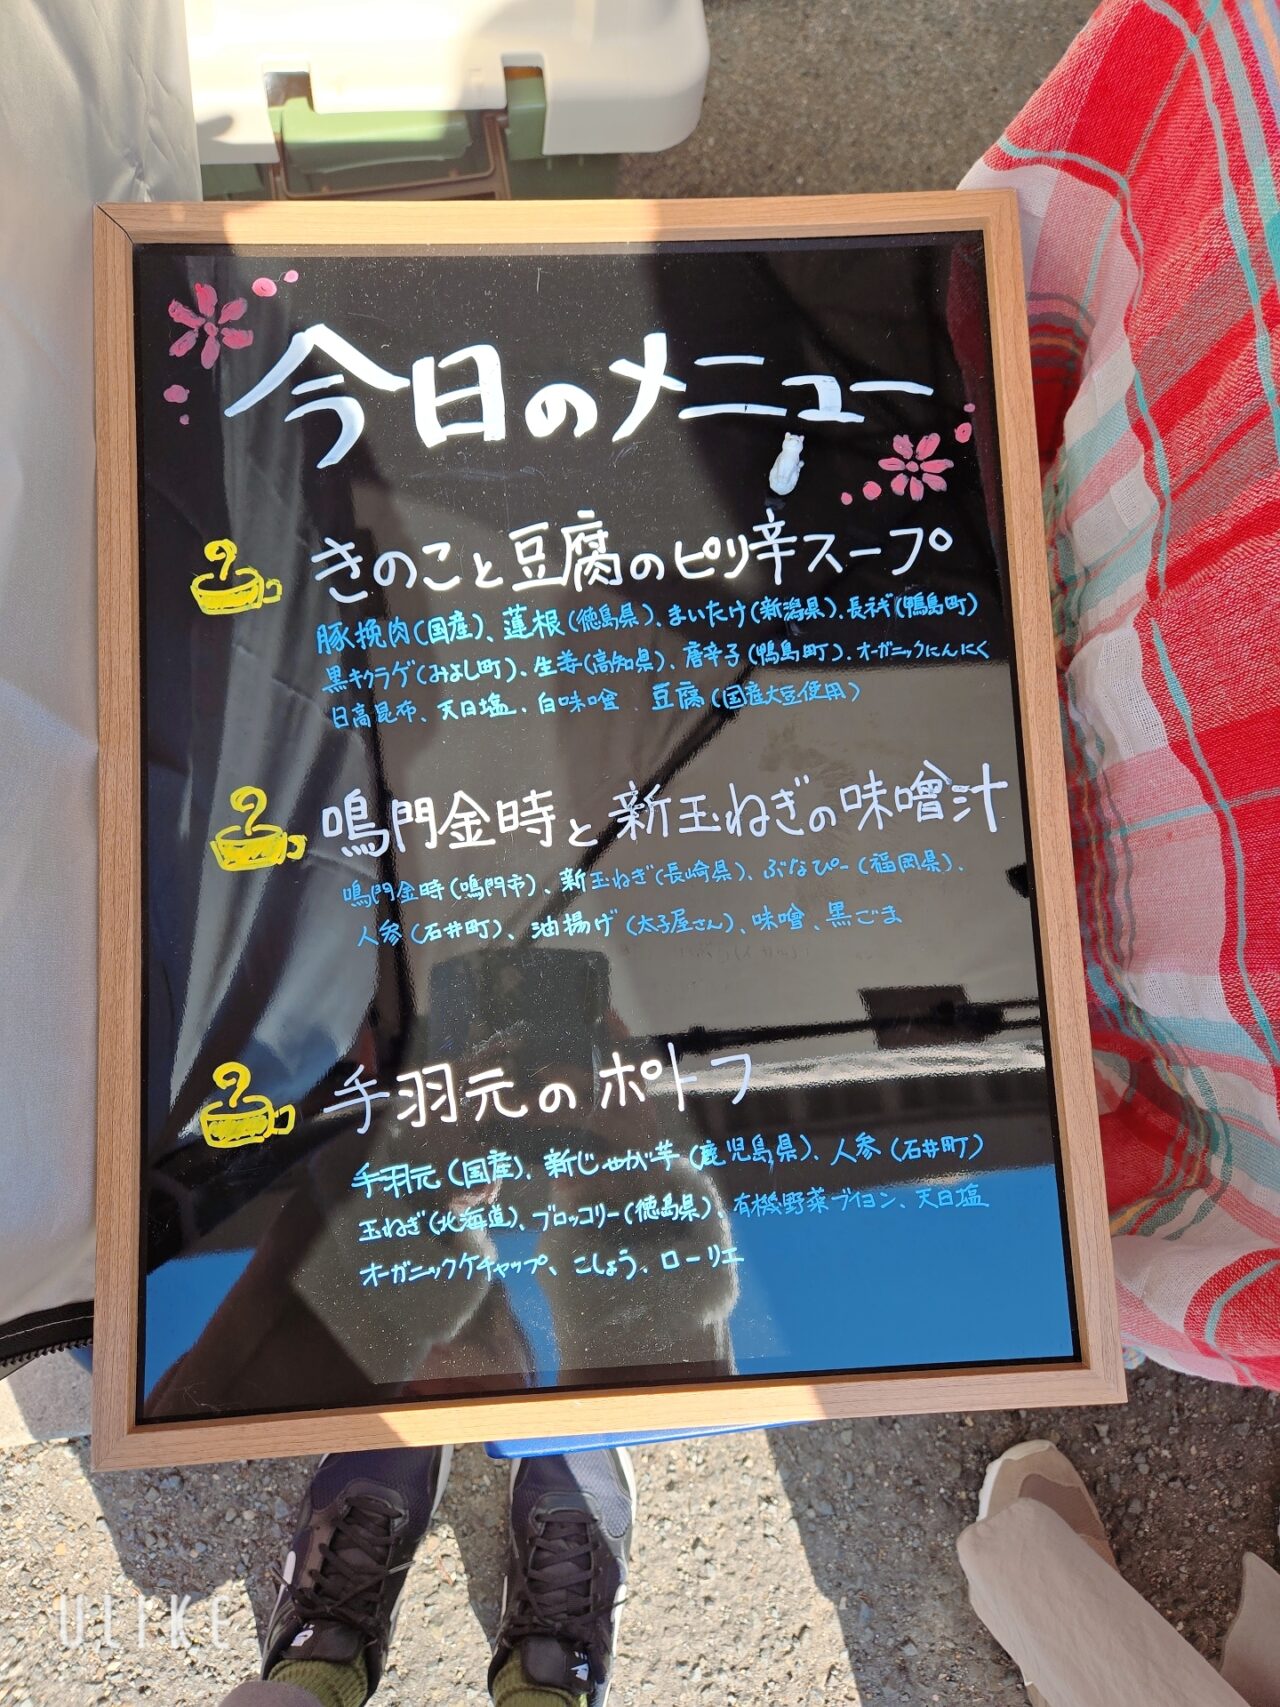 今日のメニュー
きのこと豆腐のピリ辛スープ
豚挽肉(国産)、蓮根(徳島県)、まいたけ(新潟県)、長ネギ(鴨島町)
黒キクラゲ(みよし町)、生姜(高知県)、唐辛子(鴨島町)、オーガニックにんにく
日高昆布、天日塩、白味噌、豆腐(国産大豆使用)
鳴門金時と新玉ねぎの味噌汁
鳴門金時(鳴門市)、新玉ねぎ(長崎県)、ぶなぴー(福岡県)、
人参(石井町)、油揚げ(太子屋さん)、味噌、黒ごま
手羽元のポトフ
手羽元(国産)、新じゃが芋(鹿児島県)、人参(石井町)
玉ねぎ(北海道)、ブロッコリー(徳島県)、有機野菜ブイヨン、天日塩
オーガニックケチャップ、こしょう、ローリエ
ULIKE